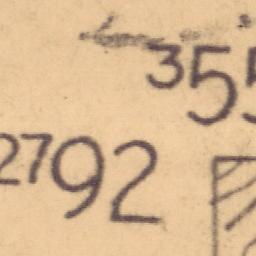 355
2792